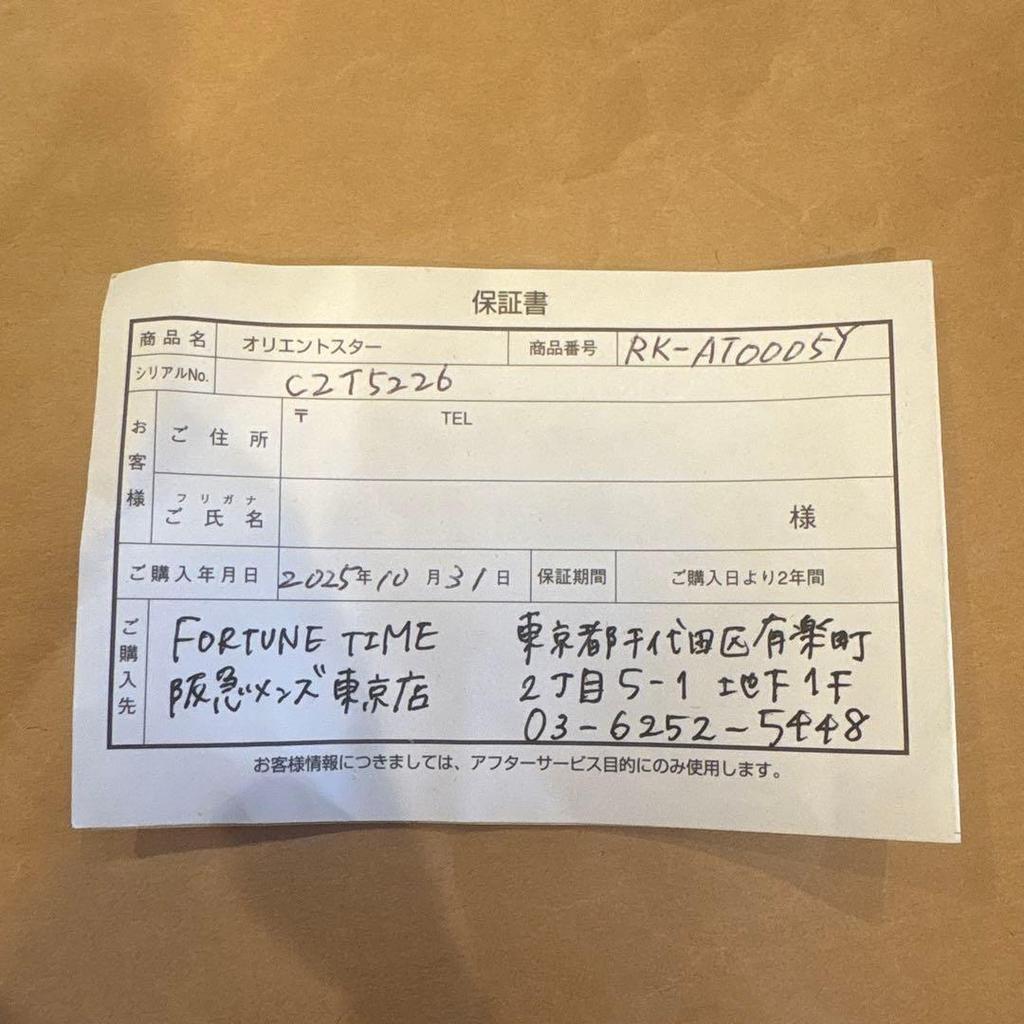 保証書
商品名 オリエントスター 商品番号 RK-AT0005Y
シリアルNo. C2T5226
お客様
ご住所 〒 TEL
フリガナ
ご氏名 様
ご購入年月日 2025年10月31日 保証期間 ご購入日より2年間
ご購入先
FORTUNE TIME 東京都千代田区有楽町
阪急メンズ東京店 2丁目5-1 地下1F
03-6252-5448
お客様情報につきましては、アフターサービス目的にのみ使用します。